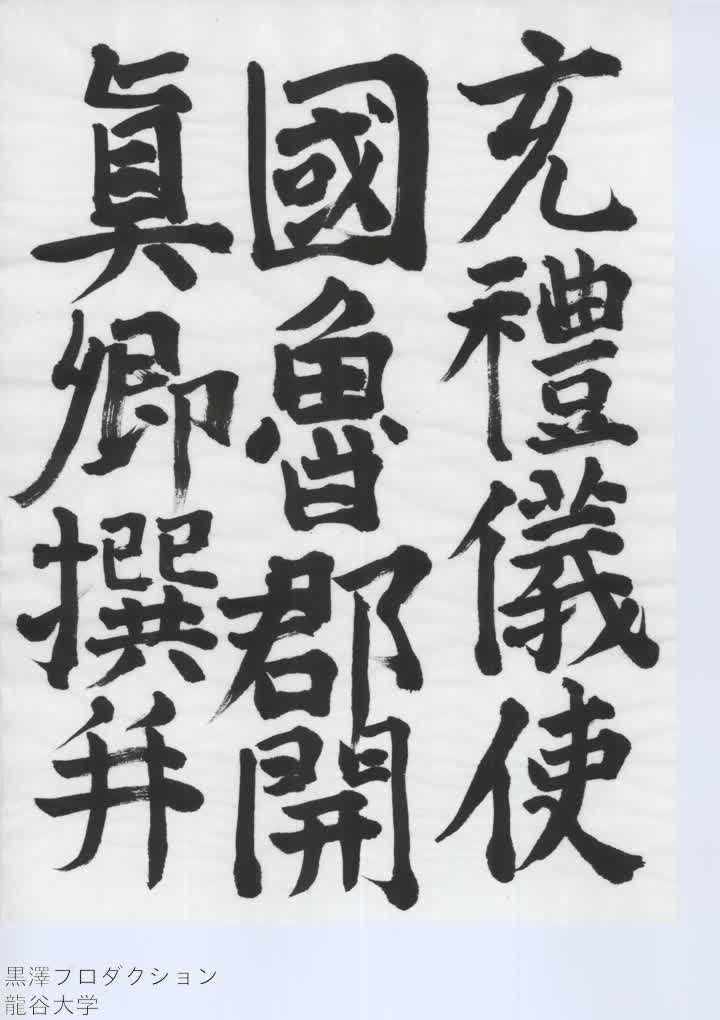 充禮儀使
國魯郡開
眞卿撰并
黒澤プロダクション
龍谷大学